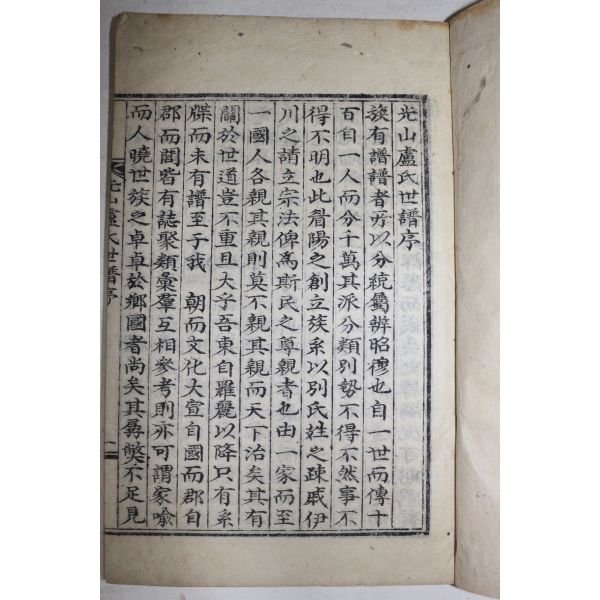 光山盧氏世譜序
族有譜譜者所以分統屬辨昭穆也自一世而傳十
百自一人而分千萬其派分類別勢不得不然事不
得不明也此眉陽之創立族系以別氏姓之疎戚伊
川之請立宗法俾爲斯民之尊親者也由一家而至
一國人各親其親則莫不親其親而天下治矣其有
關於世道豈不重且大乎吾東自羅麗以降只有系
牒而未有譜至于我 朝而文化大宣自國而郡自
郡而閭皆有誌聚類彙羣互相參考則亦可謂家喩
而人曉世族之卓卓於鄉國者尚矣其彛懿不足見
光山盧氏世譜序
一